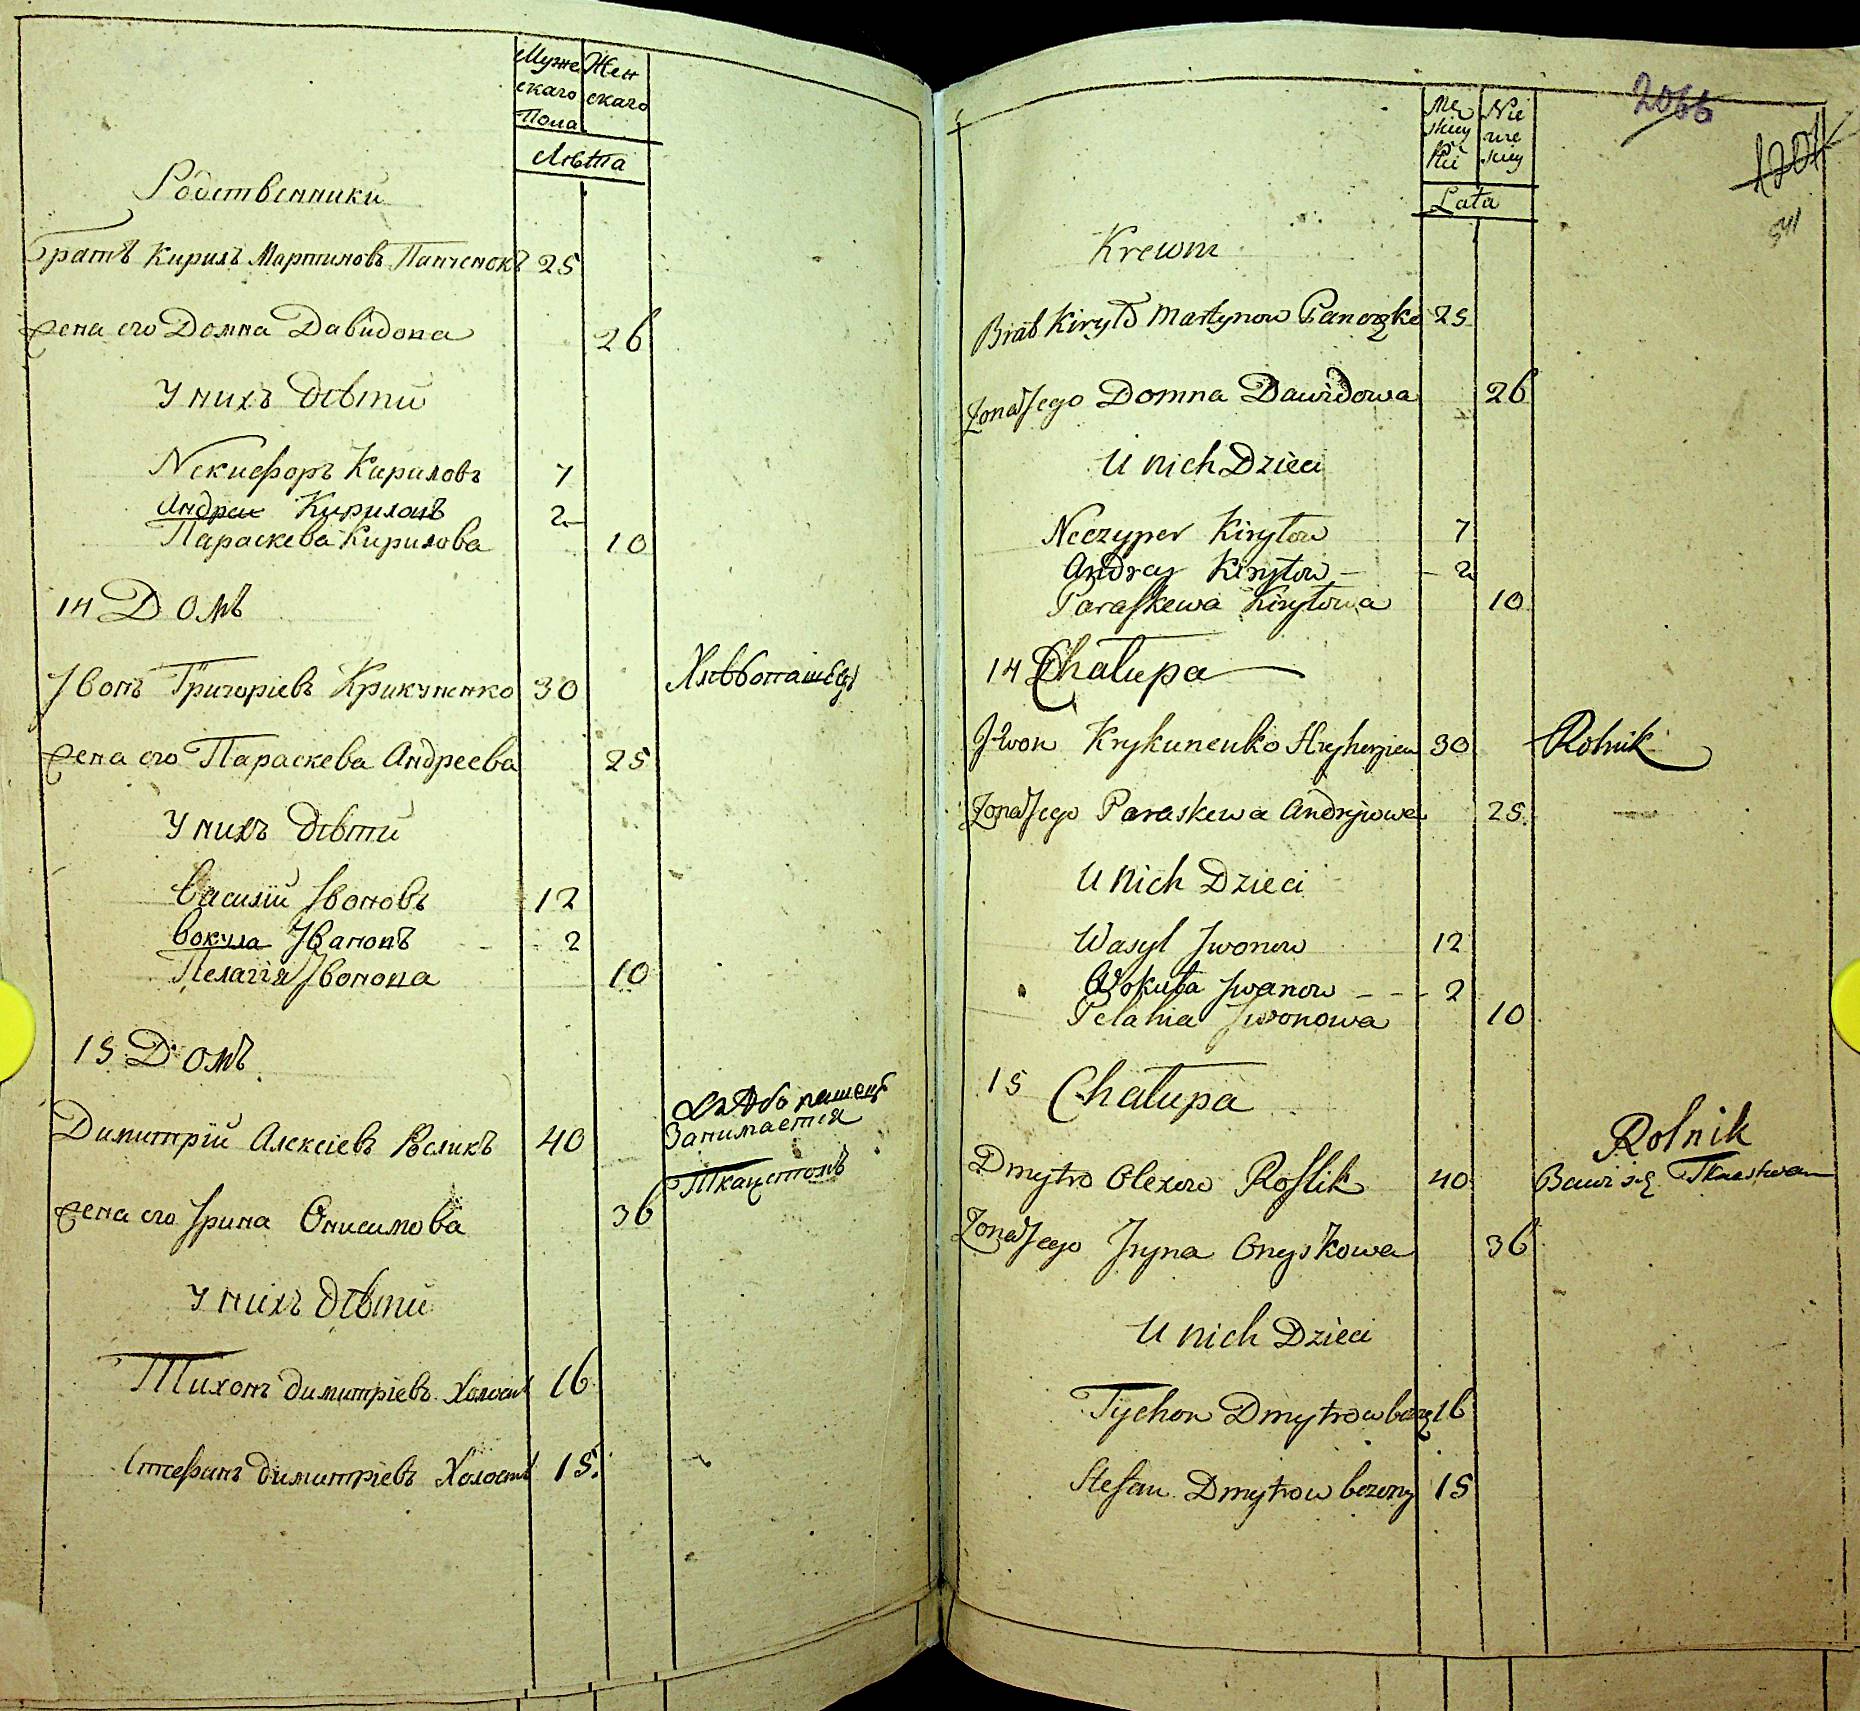 Муже Жен
скаго скаго
Пола
Лѣта
Родственники
Братъ Кирилъ Мартиновъ Панченокъ 25
Жена его Домна Давидова 26
У нихъ дѣти
Некифоръ Кириловъ 7
Андрей Кириловъ 2
Параскева Кирилова 10
14 Домъ
Івонъ Григоріевъ Крикуненко 30 Хлѣбопашецъ
Жена его Параскева Андреева 25
У нихъ дѣти
Василій Івоновъ 12
Вокула Івановъ 2
Пелагія Івонова 10
15 Домъ
Хлѣбопашецъ
Димитрій Алексіевъ Росликъ 40 Занимается
Ткацетвомъ
Жена его Ірина Онисимова 36
У нихъ дѣти
Тихонъ димитріевъ Холостъ 16
Стефанъ димитріевъ Холостъ 15
2066
1201
541
Męz Nie
skiey wie
Płci skiey
Lata
Krewni
Brat Kiryło Martynow Panczęko 25
Zona Jego Domna Dawidowa 26
U nich Dzieci
Neczyper Kiryłow 7
Andrey Kiryłow 2
Paraskewa Kiryłowa 10
14 Chałupa
Jwon Krykunenko Hryhorjew 30 Rolnik
Zona Jego Paraskewa Andrijowa 25
U nich Dzieci
Wasyl Jwonow 12
Wokuła Jwanow 2
Pelahia Jwonowa 10
15 Chałupa
Rolnik
Dmytro Olexow Roslik 40 Bawi się Tkactwem
Zona Jego Jryna Onyśkowa 36
U nich Dzieci
Tychon Dmytrow bezzę 16
Stefan Dmytrow bezeny 15